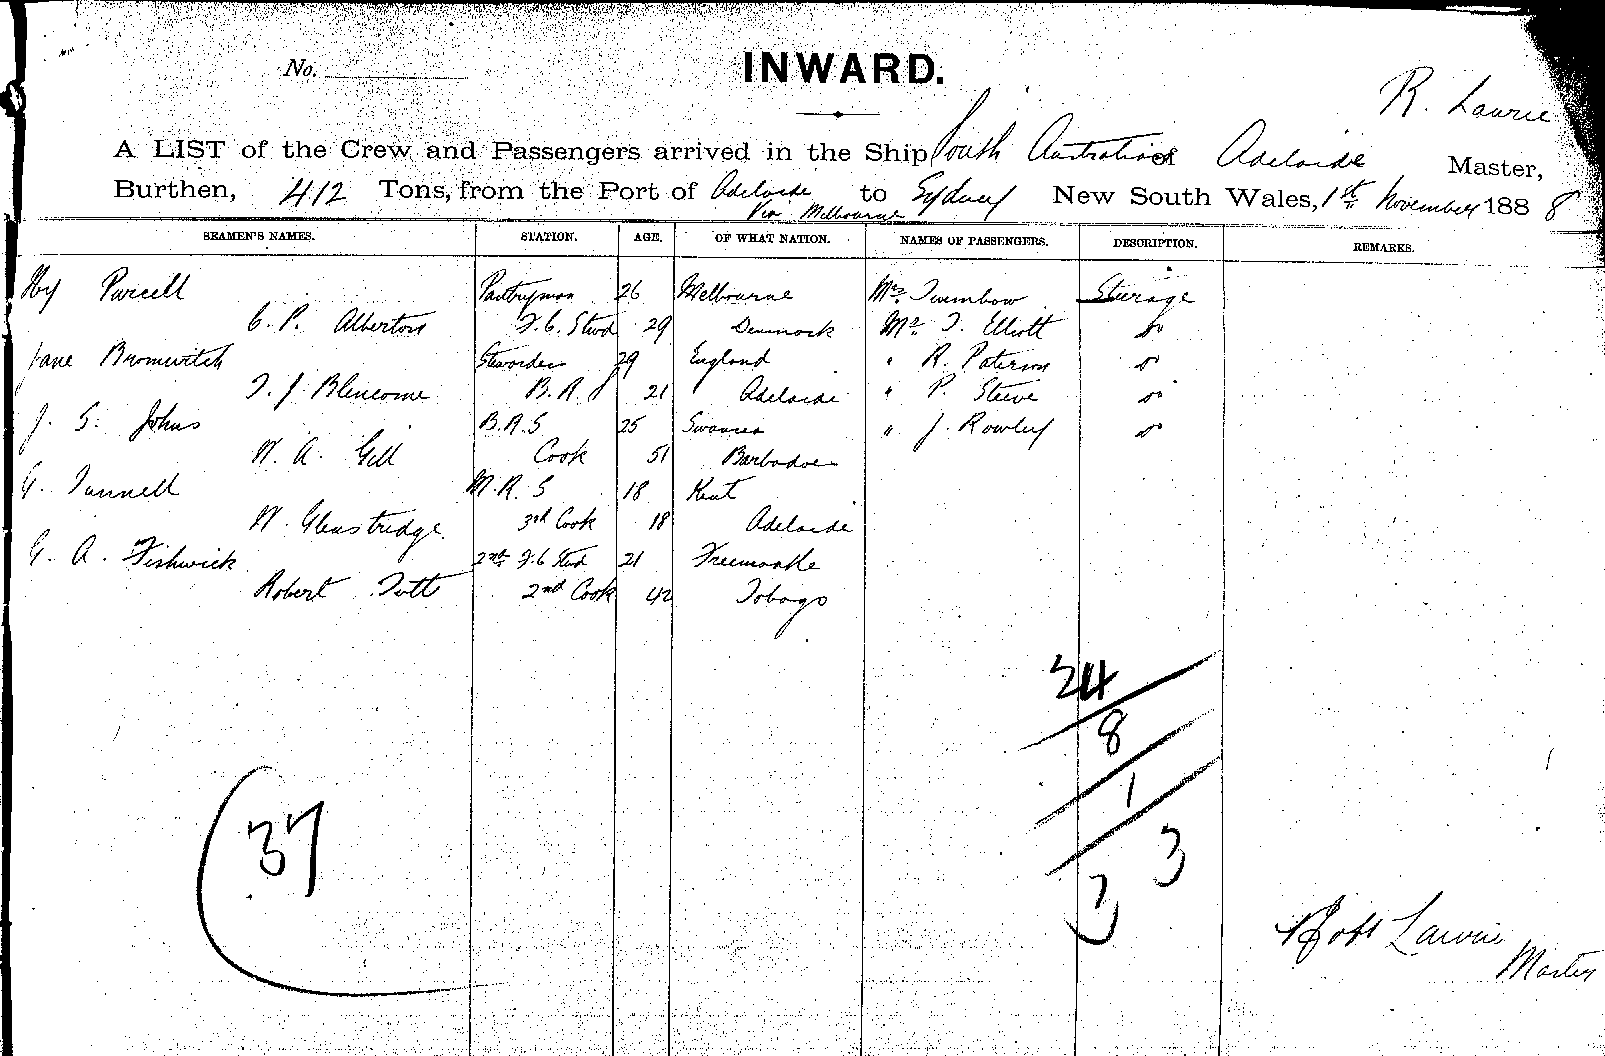 No.
INWARD.
R. Laurie
A LIST of the Crew and Passengers arrived in the Ship South Australian of Adelaide Master,
Burthen, 412 Tons, from the Port of Adelaide to Sydney New South Wales, 1st November 1888
Via Melbourne
SEAMEN'S NAMES. STATION. AGE. OF WHAT NATION. NAMES OF PASSENGERS. DESCRIPTION. REMARKS.
Hy Purcell Pantryman 26 Melbourne Mrs. Steerage
C. P. Alberton F.C. Stwd 29 Denmark Mr. T. Elliott Do
Jane Bromwitch Stewardess 29 England " R. Paterson Do
T. J. Blencowe B.R.S 21 Adelaide " P. Steeve Do
J. S. Johns B.R.S 25 Swansea " J. Rowley Do
W. A. Gill Cook 51 Barbadoes
G. Tunnell M.R.S 18 Kent
W. 3rd Cook 18 Adelaide
G. A. Fishwick 2nd F.C Stwd 21 Freemantle
Robert Tutt 2nd Cook 42 Tobago
24
8
1
3
37
Robt Laurie
Master